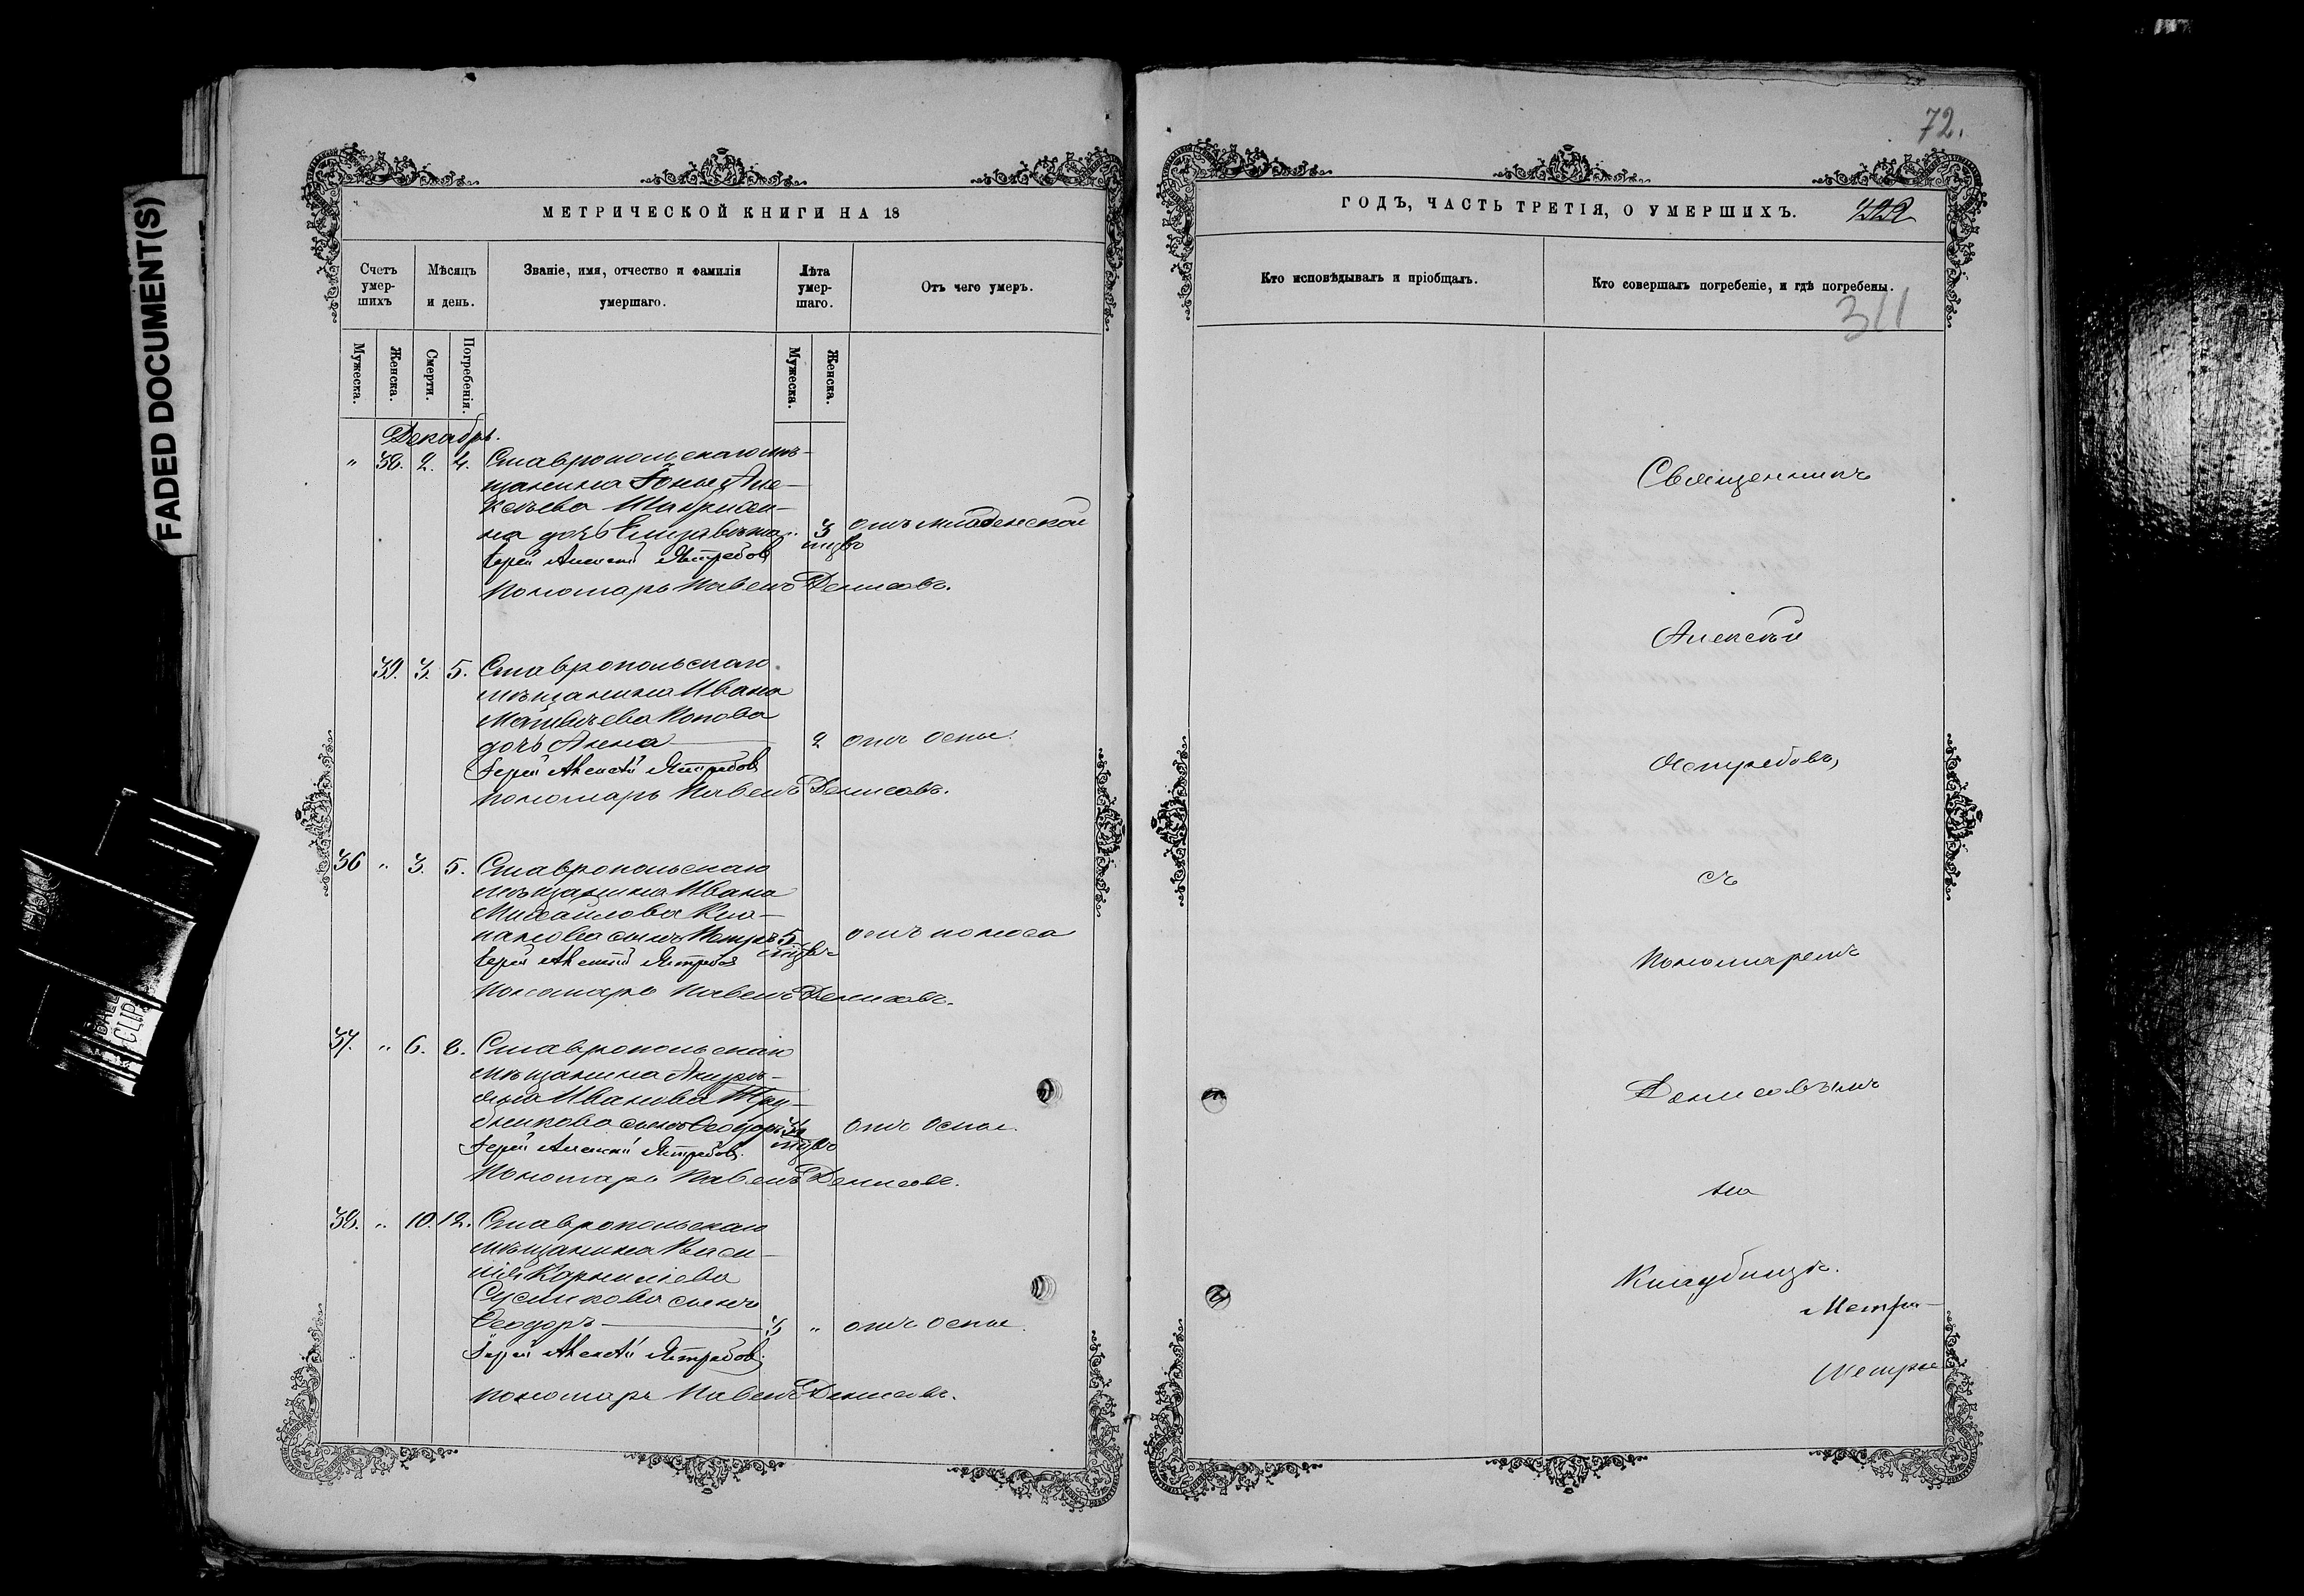 FADED DOCUMENT(S)
72.
МЕТРИЧЕСКОЙ КНИГИ НА 18
Счетъ умер-шихъ
Мѣсяцъ и день.
Званіе, имя, отчество и фамилія умершаго.
Лѣта умер-шаго.
Отъ чего умеръ.
Мужеска.
Женска.
Смерти.
Погребенія.
Мужеска.
Женска.
Декабрь.
" 38. 2. 4. Ставропольскаго мѣ-
щанина Іоны Але-
на дочь Елизавета " 3 отъ младенской
мѣсэ
Іерей Алексѣй Ястребовъ
Пономарь Павелъ Денисовъ.
39. 3. 5. Ставропольскаго
мѣщанина Ивана
Матвѣева Попова
дочь Анна 2 отъ оспы.
Іерей Алексѣй Ястребовъ
Пономарь Павелъ Денисовъ.
36 " 3. 5. Ставропольскаго
мѣщанина Ивана
Михайлова
сынъ Петръ 5 отъ поноса
Іерей Алексѣй Ястребовъ
Пономарь Павелъ Денисовъ.
37. " 6. 8. Ставропольскаго
мѣщанина
Иванова Тру-
бникова сынъ Ѳеодоръ отъ оспы.
Іерей Алексѣй Ястребовъ.
Пономарь Павелъ Денисовъ.
38. " 10. 12. Ставропольскаго
мѣщанина Васи-
лія Корнилієва
Сусликова сынъ
Ѳеодоръ 3 " отъ оспы.
Іерей Алексѣй Ястребовъ.
Пономарь Павелъ Денисовъ.
ГОДЪ, ЧАСТЬ ТРЕТІЯ, О УМЕРШИХЪ.
Кто исповѣдывалъ и пріобщалъ.
Кто совершалъ погребеніе, и гдѣ погребены.
311
Священникъ
Алексѣй
Ястребовъ,
съ
Пономаремъ
Денисовымъ
на
Кладбищѣ.